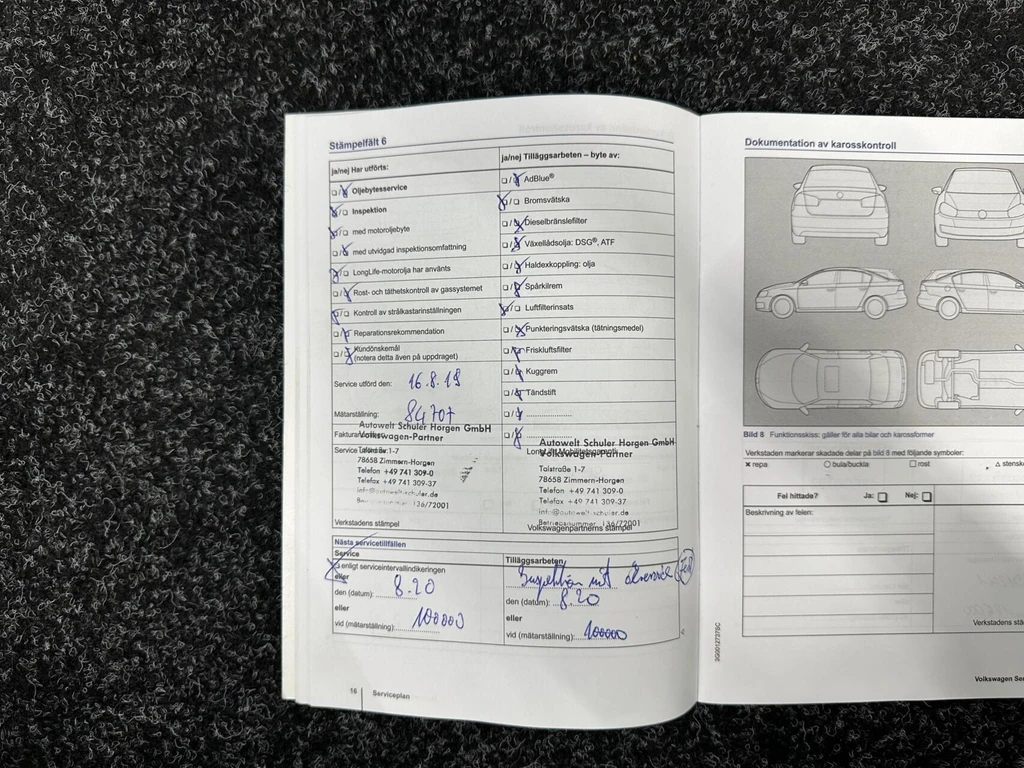 Stämpelfält 6
ja/nej Har utförts:
Oljebytesservice
Inspektion
med motoroljebyte
med utvidgad inspektionsomfattning
LongLife-motorolja har använts
Rost- och täthetskontroll av gassystemet
Kontroll av strålkastarinställningen
Reparationsrekommendation
Kundönskemål
(notera detta även på uppdraget)
Service utförd den: 16.8.19
Mätarställning: 84707
ja/nej Tilläggsarbeten – byte av:
AdBlue®
Bromsvätska
Dieselbränslefilter
Växellådsolja: DSG®, ATF
Haldexkoppling: olja
Spårkilrem
Luftfilterinsats
Punkteringsvätska (tätningsmedel)
Friskluftsfilter
Kuggrem
Tändstift
Autowelt Schuler Horgen GmbH
Volkswagen-Partner
78658 Zimmern-Horgen
Telefon +49 741 309-0
Telefax +49 741 309-37
Verkstadens stämpel
Autowelt Schuler Horgen GmbH
Volkswagen-Partner
Talstraße 1-7
78658 Zimmern-Horgen
Telefon +49 741 309-0
Telefax +49 741 309-37
info@autowelt-schuler.de
Betriebsnummer 136/72001
Volkswagenpartnerns stämpel
Nästa servicetillfällen
Service
enligt serviceintervallindikeringen
eller
den (datum): 8.20
eller
vid (mätarställning): 100000
Tilläggsarbeten
Inspektion mit
den (datum): 8.20
eller
vid (mätarställning): 100000
16 Serviceplan
Dokumentation av karosskontroll
Bild 8 Funktionsskiss: gäller för alla bilar och karossformer
Verkstaden markerar skadade delar på bild 8 med följande symboler:
x repa
bula/buckla
rost
Fel hittade? Ja: Nej:
Beskrivning av felen:
3G0012737SC
Verkstadens
Volkswagen